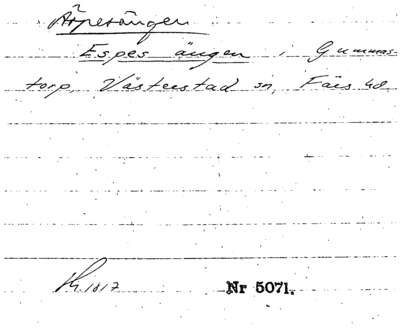 Äspesängen
Espes ängen i Gummas-
torp, Västerstad sn, Färs hd
Th. 1817
Nr 5071.